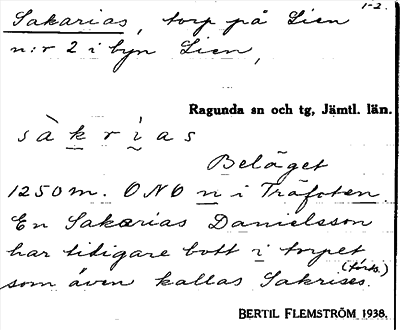 1-2.
Sakarias, torp på Lien
n:r 2 i byn Lien,
Ragunda sn och tg, Jämtl. län.
sàkrias
Beläget
1250 m. ONO n i Träfoten.
En Sakarias Danielsson
har tidigare bott i torpet
(torp.)
som även kallas Sakrises.
BERTIL FLEMSTRÖM 1938.